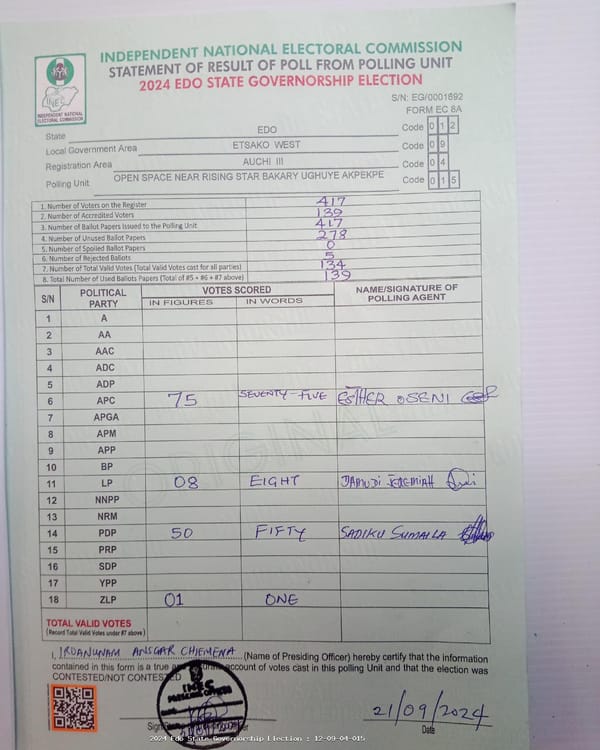 INDEPENDENT NATIONAL ELECTORAL COMMISSION
STATEMENT OF RESULT OF POLL FROM POLLING UNIT
2024 EDO STATE GOVERNORSHIP ELECTION
INEC
INDEPENDENT NATIONAL
ELECTORAL COMMISSION
S/N: EG/0001692
FORM EC 8A
State EDO Code 0 1 2
Local Government Area ETSAKO WEST Code 0 9
Registration Area AUCHI III Code 0 4
Polling Unit OPEN SPACE NEAR RISING STAR BAKARY UGHUYE AKPEKPE Code 0 1 5
1. Number of Voters on the Register 417
2. Number of Accredited Voters 139
3. Number of Ballot Papers Issued to the Polling Unit 417
4. Number of Unused Ballot Papers 278
5. Number of Spoiled Ballot Papers 0
6. Number of Rejected Ballots 5
7. Number of Total Valid Votes (Total Valid Votes cast for all parties) 134
8. Total Number of Used Ballots Papers (Total of #5 + #6 + #7 above) 139
S/N POLITICAL PARTY VOTES SCORED NAME/SIGNATURE OF POLLING AGENT
IN FIGURES IN WORDS
1 A
2 AA
3 AAC
4 ADC
5 ADP
6 APC 75 SEVENTY-FIVE ESTHER OSENI
7 APGA
8 APM
9 APP
10 BP
11 LP 08 EIGHT JEREMIAH
12 NNPP
13 NRM
14 PDP 50 FIFTY SADIKU SUMAILA
15 PRP
16 SDP
17 YPP
18 ZLP 01 ONE
ORIGINAL
TOTAL VALID VOTES
(Record Total Valid Votes under #7 above)
I, ANSGAR CHIEMENA (Name of Presiding Officer) hereby certify that the information
contained in this form is a true account of votes cast in this Polling Unit and that the election was
CONTESTED/NOT CONTESTED
INEC
21/09/2024
Date
2024 Edo State Governorship Election : 12-09-04-015